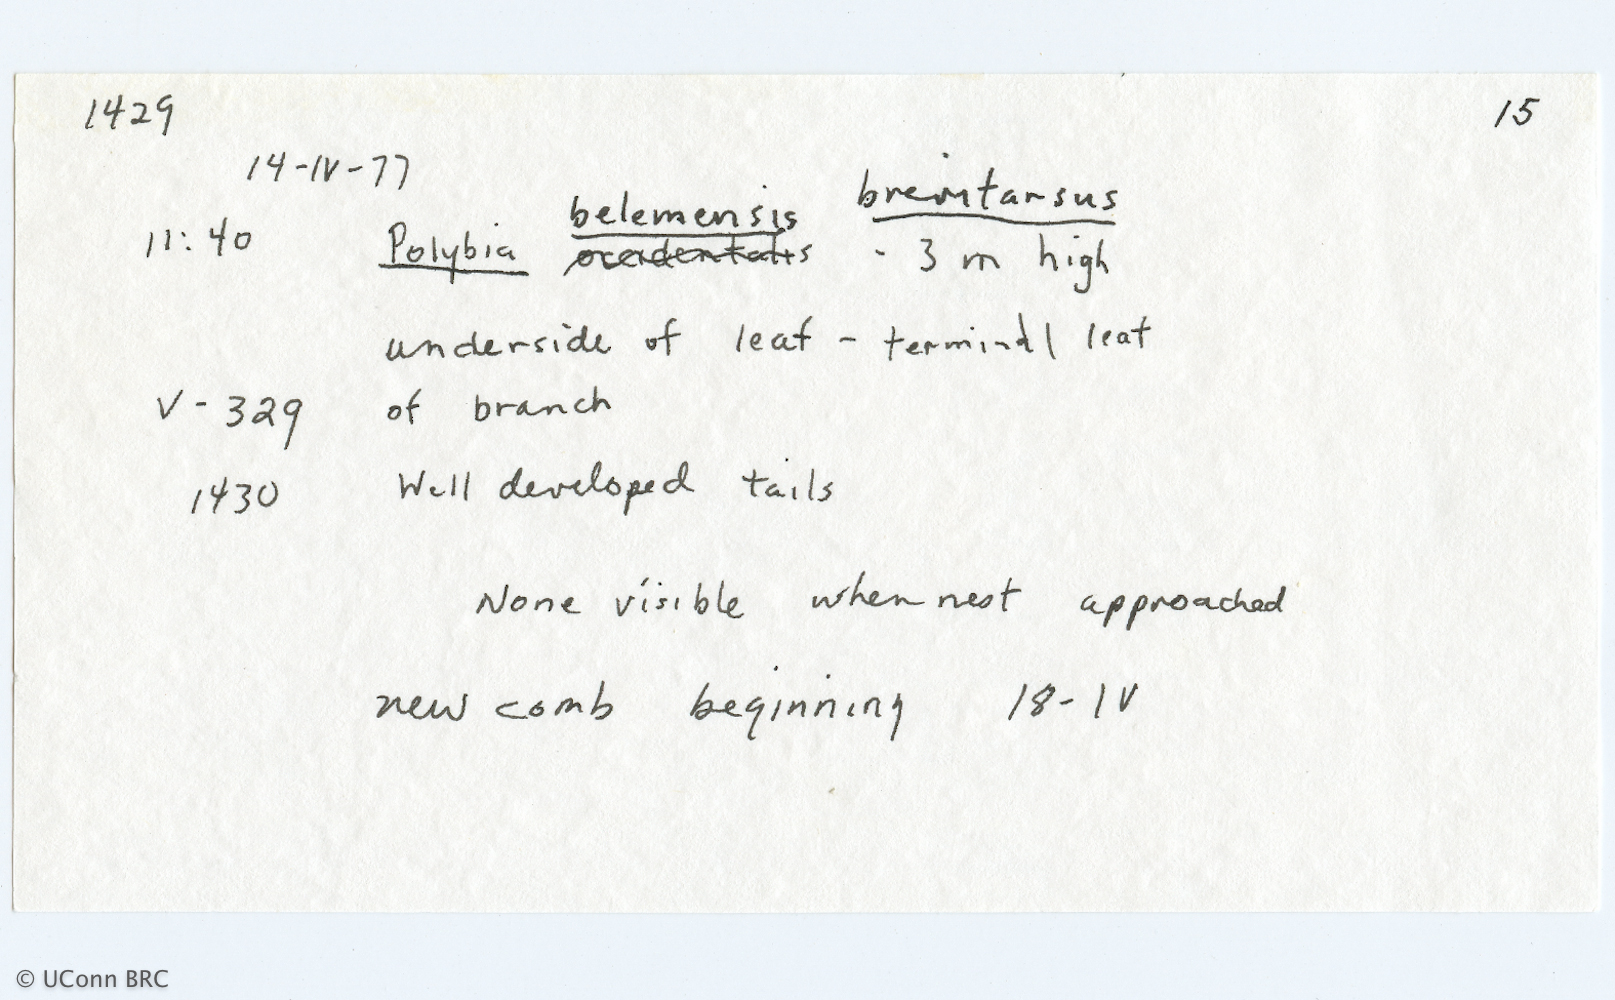 1429 15
14-IV-77
belemensis brevitarsus
11:40 Polybia occidentalis - 3 m high
underside of leaf - terminal leaf
V-329 of branch
1430 Well developed tails
None visible when nest approached
new comb beginning 18-IV
© UConn BRC